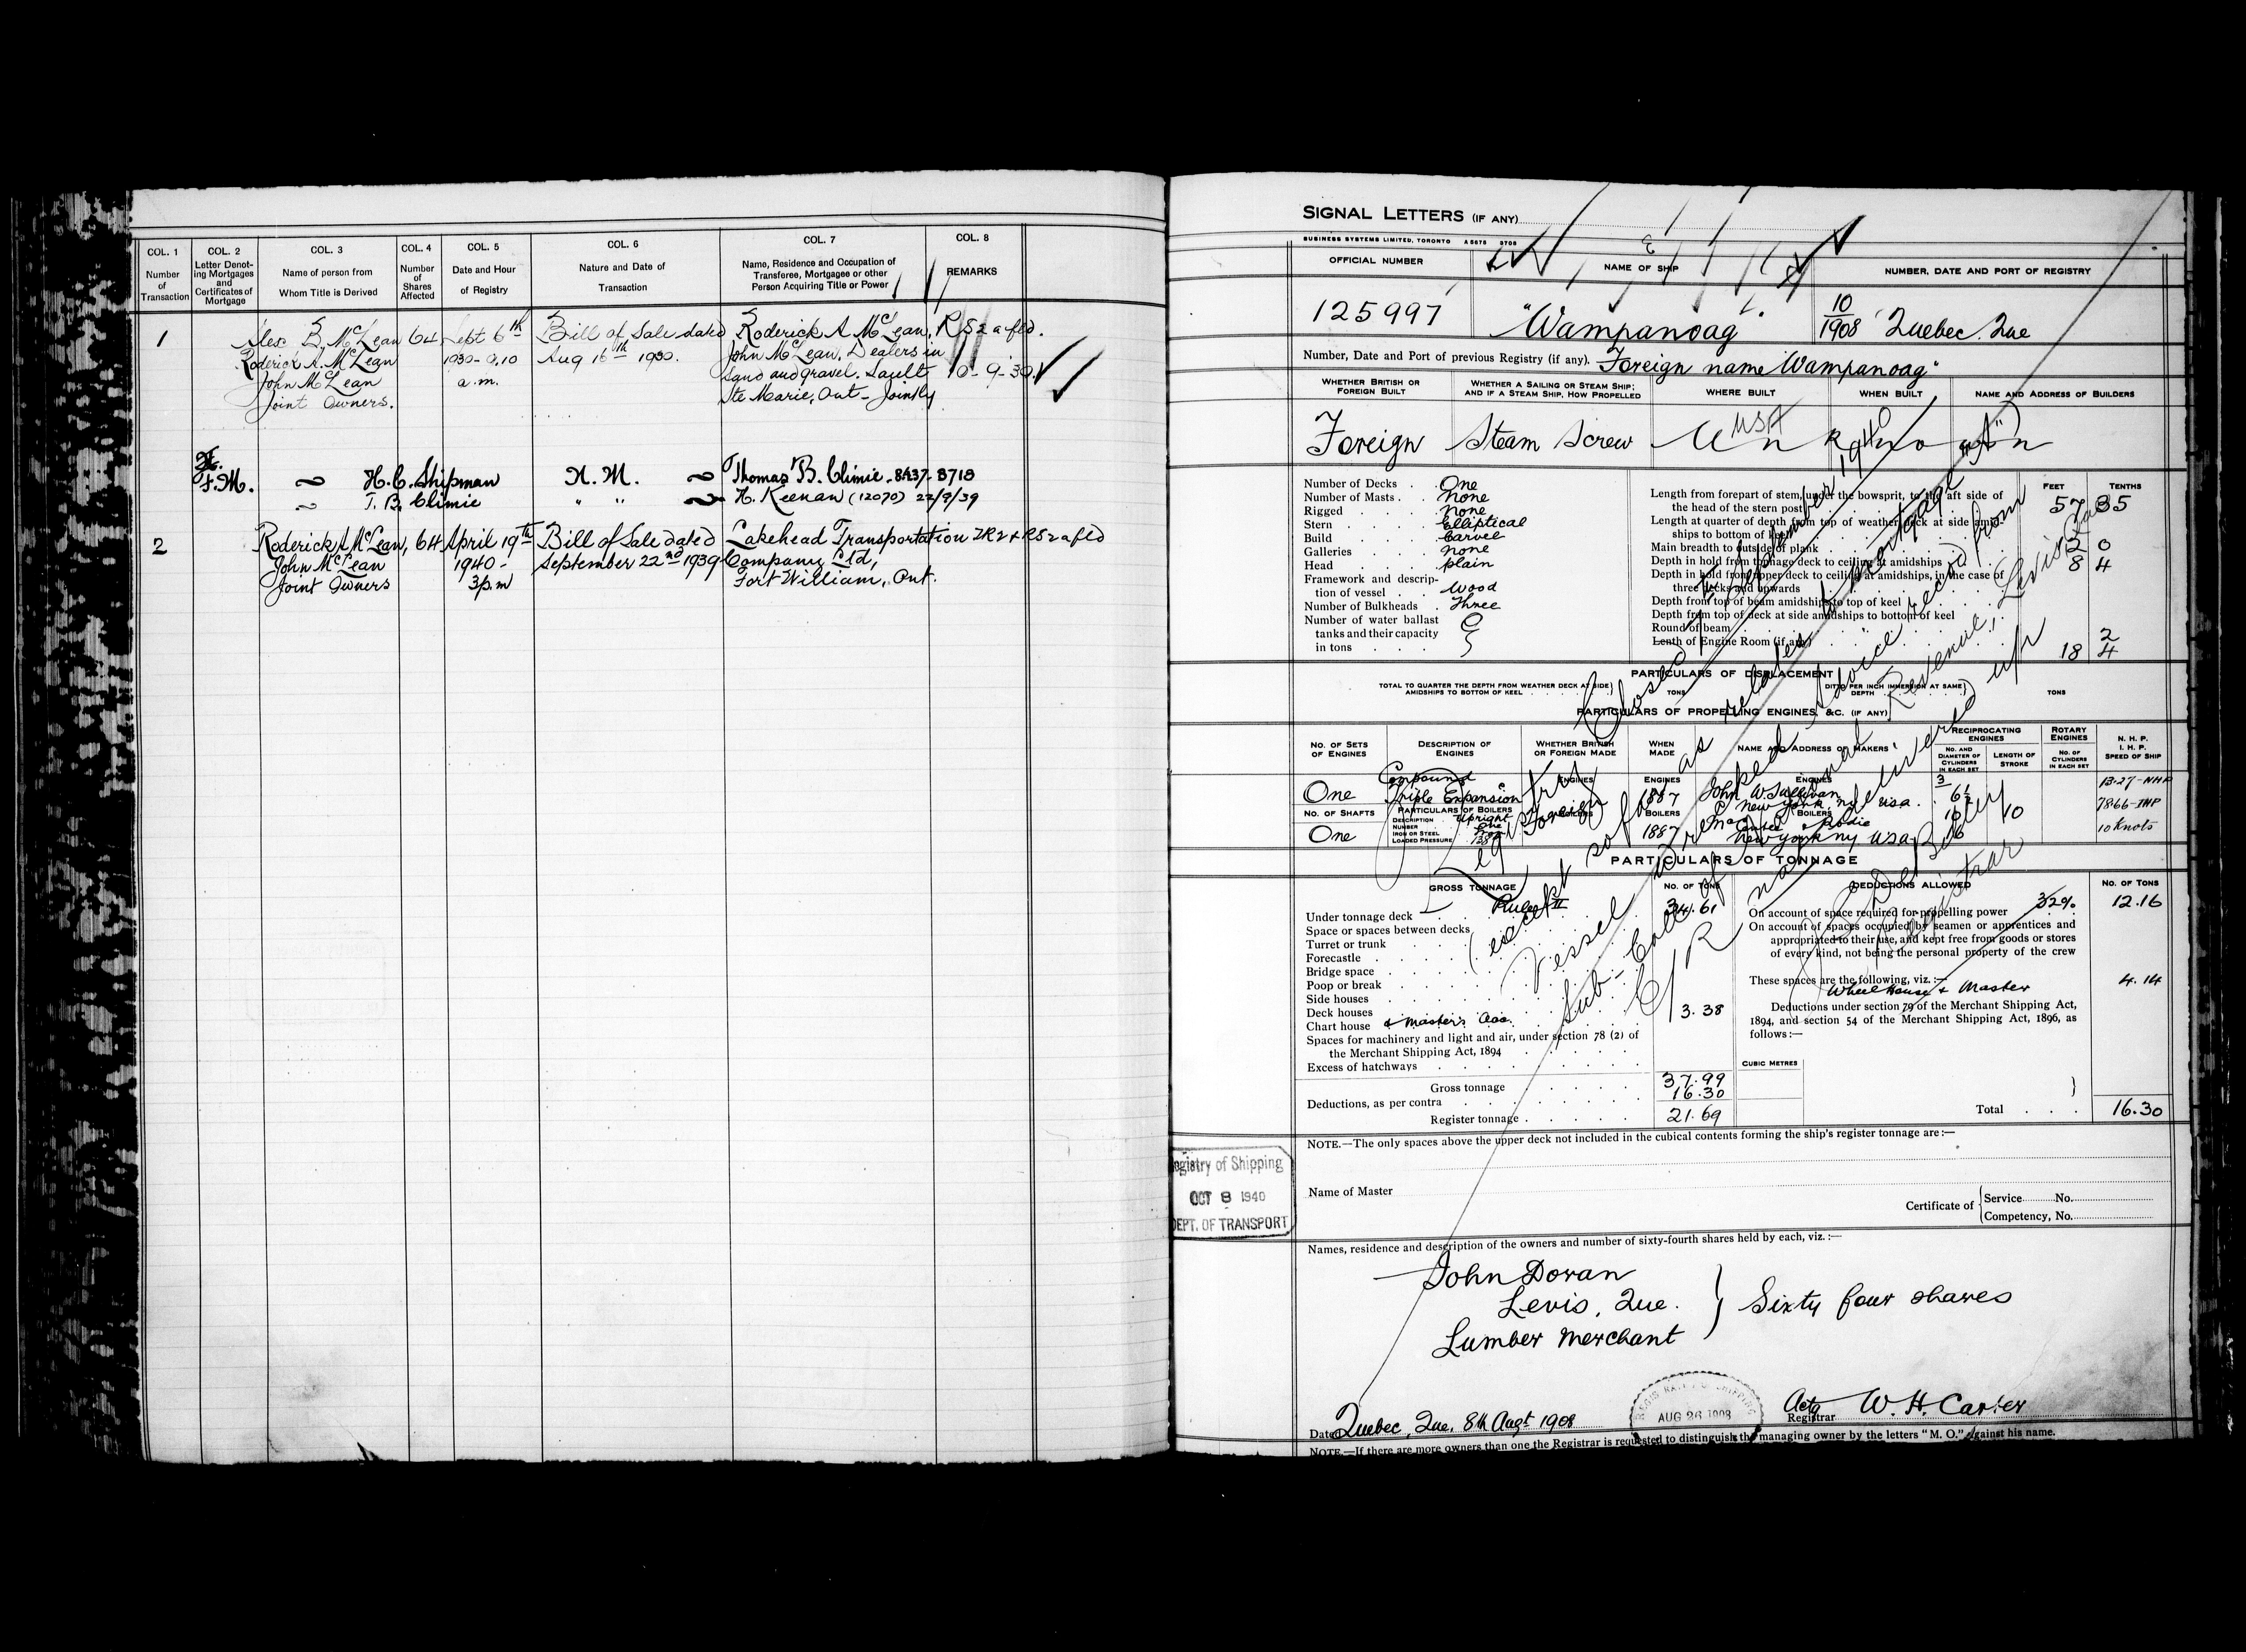 COL. 1 COL. 2 COL. 3 COL. 4 COL. 5 COL. 6 COL. 7 COL. 8
Number of Transaction
Letter Denoting Mortgages and Certificates of Mortgage
Name of person from Whom Title is Derived
Number of Shares Affected
Date and Hour of Registry
Nature and Date of Transaction
Name, Residence and Occupation of Transferee, Mortgagee or other Person Acquiring Title or Power
REMARKS
1 Alex B. McLean 64 Sept 6th Bill of Sale dated Roderick A McLean, RS2 a fld.
Roderick A. McLean 1930-9.10 Aug 16th 1930. John McLean, Dealers in
John McLean a.m. Sand and gravel. Sault 10-9-30
Joint Owners. Ste Marie, Ont - Jointly
F.M. H.C. Shipman N.M. Thomas B. Climie - 8437-8718
T. B. Climie " " H. Keenan (12070) 22/9/39
2 Roderick A McLean, 64 April 19th Bill of Sale dated Lakehead Transportation 2R2 + RS2 a fld
John McLean 1940- September 22nd 1939 Company Ltd,
Joint Owners 3 p.m Fort William, Ont.
SIGNAL LETTERS (IF ANY)
BUSINESS SYSTEMS LIMITED, TORONTO
OFFICIAL NUMBER NAME OF SHIP NUMBER, DATE AND PORT OF REGISTRY
125997 "Wampanoag" 10/1908 Quebec. Que
Number, Date and Port of previous Registry (if any). Foreign name "Wampanoag"
WHETHER BRITISH OR FOREIGN BUILT
WHETHER A SAILING OR STEAM SHIP; AND IF A STEAM SHIP, HOW PROPELLED
WHERE BUILT WHEN BUILT NAME AND ADDRESS OF BUILDERS
USA
Foreign Steam Screw Unknown
Number of Decks One
Number of Masts None
Rigged None
Stern Elliptical
Build Carvel
Galleries None
Head Plain
Framework and description of vessel Wood
Number of Bulkheads Three
Number of water ballast tanks and their capacity in tons
FEET TENTHS
Length from forepart of stem, under the bowsprit, to the aft side of the head of the stern post 57 85
Length at quarter of depth from top of weather deck at side amidships to bottom of keel
Main breadth to outside of plank 12 0
Depth in hold from tonnage deck to ceiling at amidships 8 4
Depth in hold from upper deck to ceiling at amidships, in the case of three decks and upwards
Depth from top of beam amidships to top of keel
Depth from top of deck at side amidships to bottom of keel
Round of beam 2
Lenth of Engine Room (if any) 18 4
PARTICULARS OF DISPLACEMENT
TOTAL TO QUARTER THE DEPTH FROM WEATHER DECK AT SIDE AMIDSHIPS TO BOTTOM OF KEEL TONS
DITTO PER INCH IMMERSION AT SAME DEPTH TONS
PARTICULARS OF PROPELLING ENGINES, &C. (IF ANY)
NO. OF SETS OF ENGINES
DESCRIPTION OF ENGINES
WHETHER BRITISH OR FOREIGN MADE
WHEN MADE
NAME AND ADDRESS OF MAKERS
RECIPROCATING ENGINES
NO. AND DIAMETER OF CYLINDERS IN EACH SET
LENGTH OF STROKE
ROTARY ENGINES
NO. OF CYLINDERS IN EACH SET
N. H. P. I. H. P. SPEED OF SHIP
Compound
One Triple Expansion ENGINES Foreign ENGINES 1887 ENGINES John W Sullivan New York, ny usa. 3 6½ 10 13.27-NHP
NO. OF SHAFTS PARTICULARS OF BOILERS BOILERS BOILERS BOILERS 10 78.66-IHP
One DESCRIPTION Upright
NUMBER One
IRON OR STEEL Iron
LOADED PRESSURE
1887 New York ny usa 16 10 Knots
PARTICULARS OF TONNAGE
GROSS TONNAGE NO. OF TONS DEDUCTIONS ALLOWED NO. OF TONS
Under tonnage deck Rule II 34.61
Space or spaces between decks
Turret or trunk
Forecastle
Bridge space
Poop or break
Side houses
Deck houses
Chart house & Master's Acc. 3.38
Spaces for machinery and light and air, under section 78 (2) of the Merchant Shipping Act, 1894
Excess of hatchways
Gross tonnage 37.99
Deductions, as per contra 16.30
Register tonnage 21.69
On account of space required for propelling power 32% 12.16
On account of spaces occupied by seamen or apprentices and appropriated to their use, and kept free from goods or stores of every kind, not being the personal property of the crew
These spaces are the following, viz.:—
Wheel House & Master 4.14
Deductions under section 79 of the Merchant Shipping Act, 1894, and section 54 of the Merchant Shipping Act, 1896, as follows:—
CUBIC METRES
Total 16.30
Registry closed September 1940
(except so far as relates to mortgage "A")
Vessel wrecked. Advice rec'd from
Sub-Coll. of National Revenue, Levis Que
C/R not delivered up
Registrar
NOTE.—The only spaces above the upper deck not included in the cubical contents forming the ship's register tonnage are:—
Registry of Shipping
OCT 8 1940
DEPT. OF TRANSPORT
Name of Master
Certificate of Service No.
Competency, No.
Names, residence and description of the owners and number of sixty-fourth shares held by each, viz.:—
John Doran
Levis, Que. Sixty four shares
Lumber Merchant
AUG 26 1908
Actg W. H. Carter
Registrar
Dated Quebec, Que. 8th Augt 1908
NOTE.—If there are more owners than one the Registrar is requested to distinguish the managing owner by the letters "M. O." against his name.